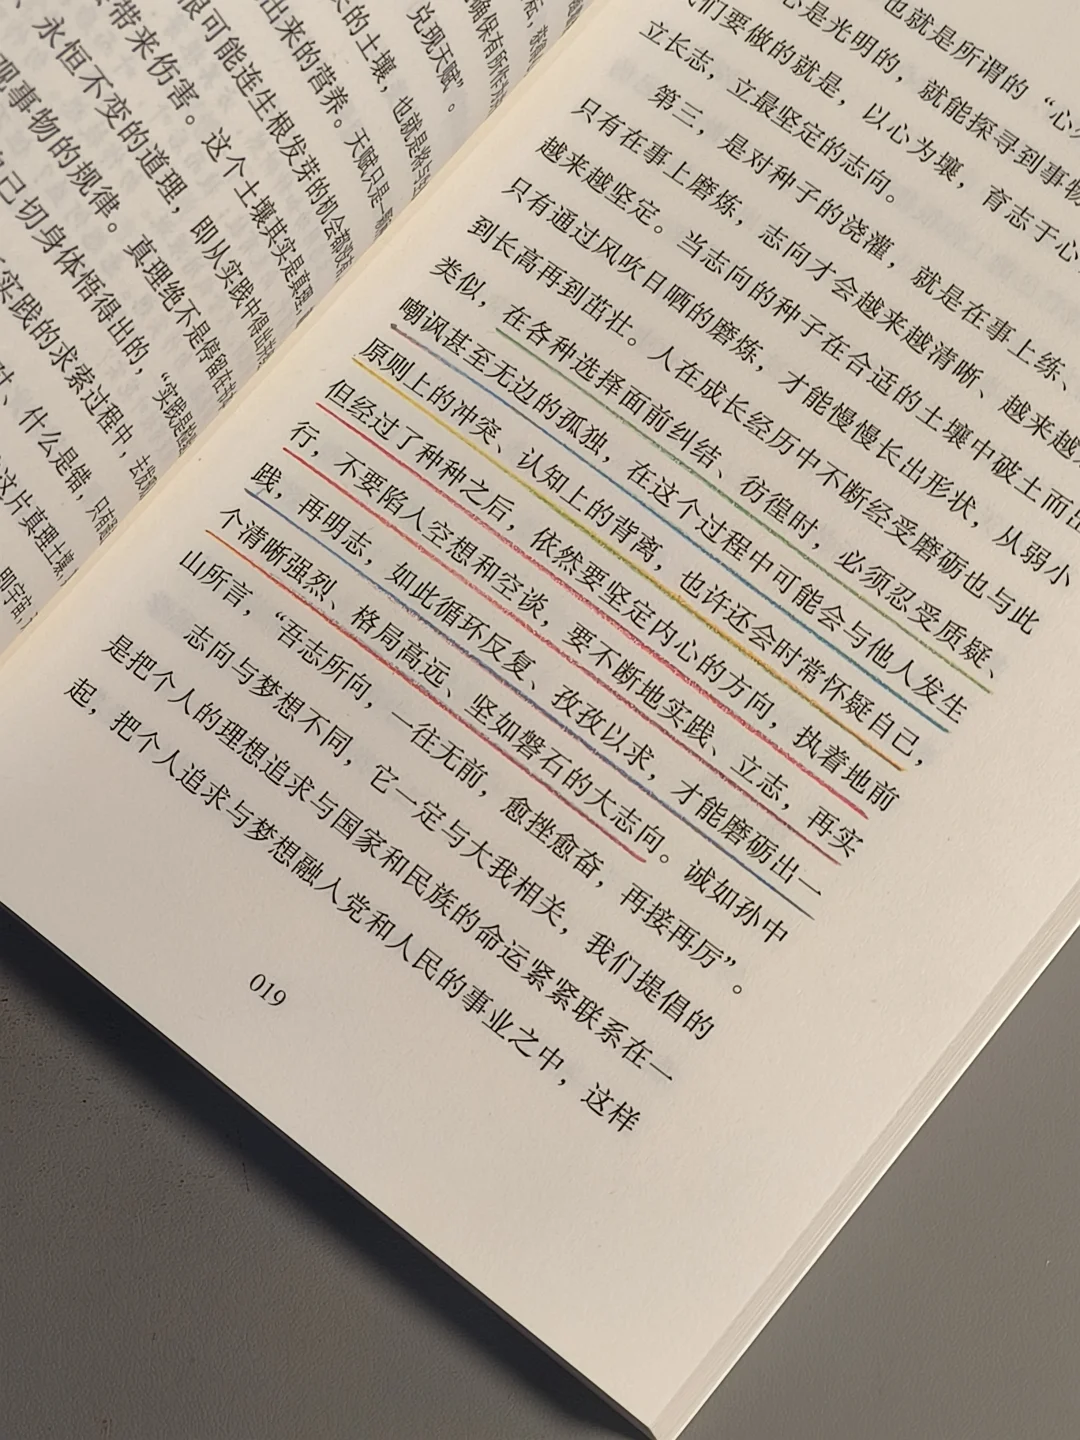 兑现天赋”。
长的土壤，也就是
出来的营养。天赋只是
很可能连生根发芽的机会都
带来伤害。这个土壤其实是真理
、永恒不变的道理，即从实践中得出
观事物的规律。真理绝不是停留在
己切身体悟得出的，“实践是
实践的求索过程中，去
、什么是错，只有
这片真理土壤
也就是所谓的“心
心是光明的，就能探寻到事物
们要做的就是，以心为壤，育志于心
立长志，立最坚定的志向。
第三，是对种子的浇灌，就是在事上练、
只有在事上磨炼，志向才会越来越清晰、越来越
越来越坚定。当志向的种子在合适的土壤中破土而出
只有通过风吹日晒的磨炼，才能慢慢长出形状，从弱小
到长高再到茁壮。人在成长经历中不断经受磨砺也与此
类似，在各种选择面前纠结、彷徨时，必须忍受质疑、
嘲讽甚至无边的孤独，在这个过程中可能会与他人发生
原则上的冲突、认知上的背离，也许还会时常怀疑自己，
但经过了种种之后，依然要坚定内心的方向，执着地前
行，不要陷入空想和空谈，要不断地实践、立志，再实
践，再明志，如此循环反复、孜孜以求，才能磨砺出一
个清晰强烈、格局高远、坚如磐石的大志向。诚如孙中
山所言，“吾志所向，一往无前，愈挫愈奋，再接再厉”。
志向与梦想不同，它一定与大我相关，我们提倡的
是把个人的理想追求与国家和民族的命运紧紧联系在一
起，把个人追求与梦想融入党和人民的事业之中，这样
019